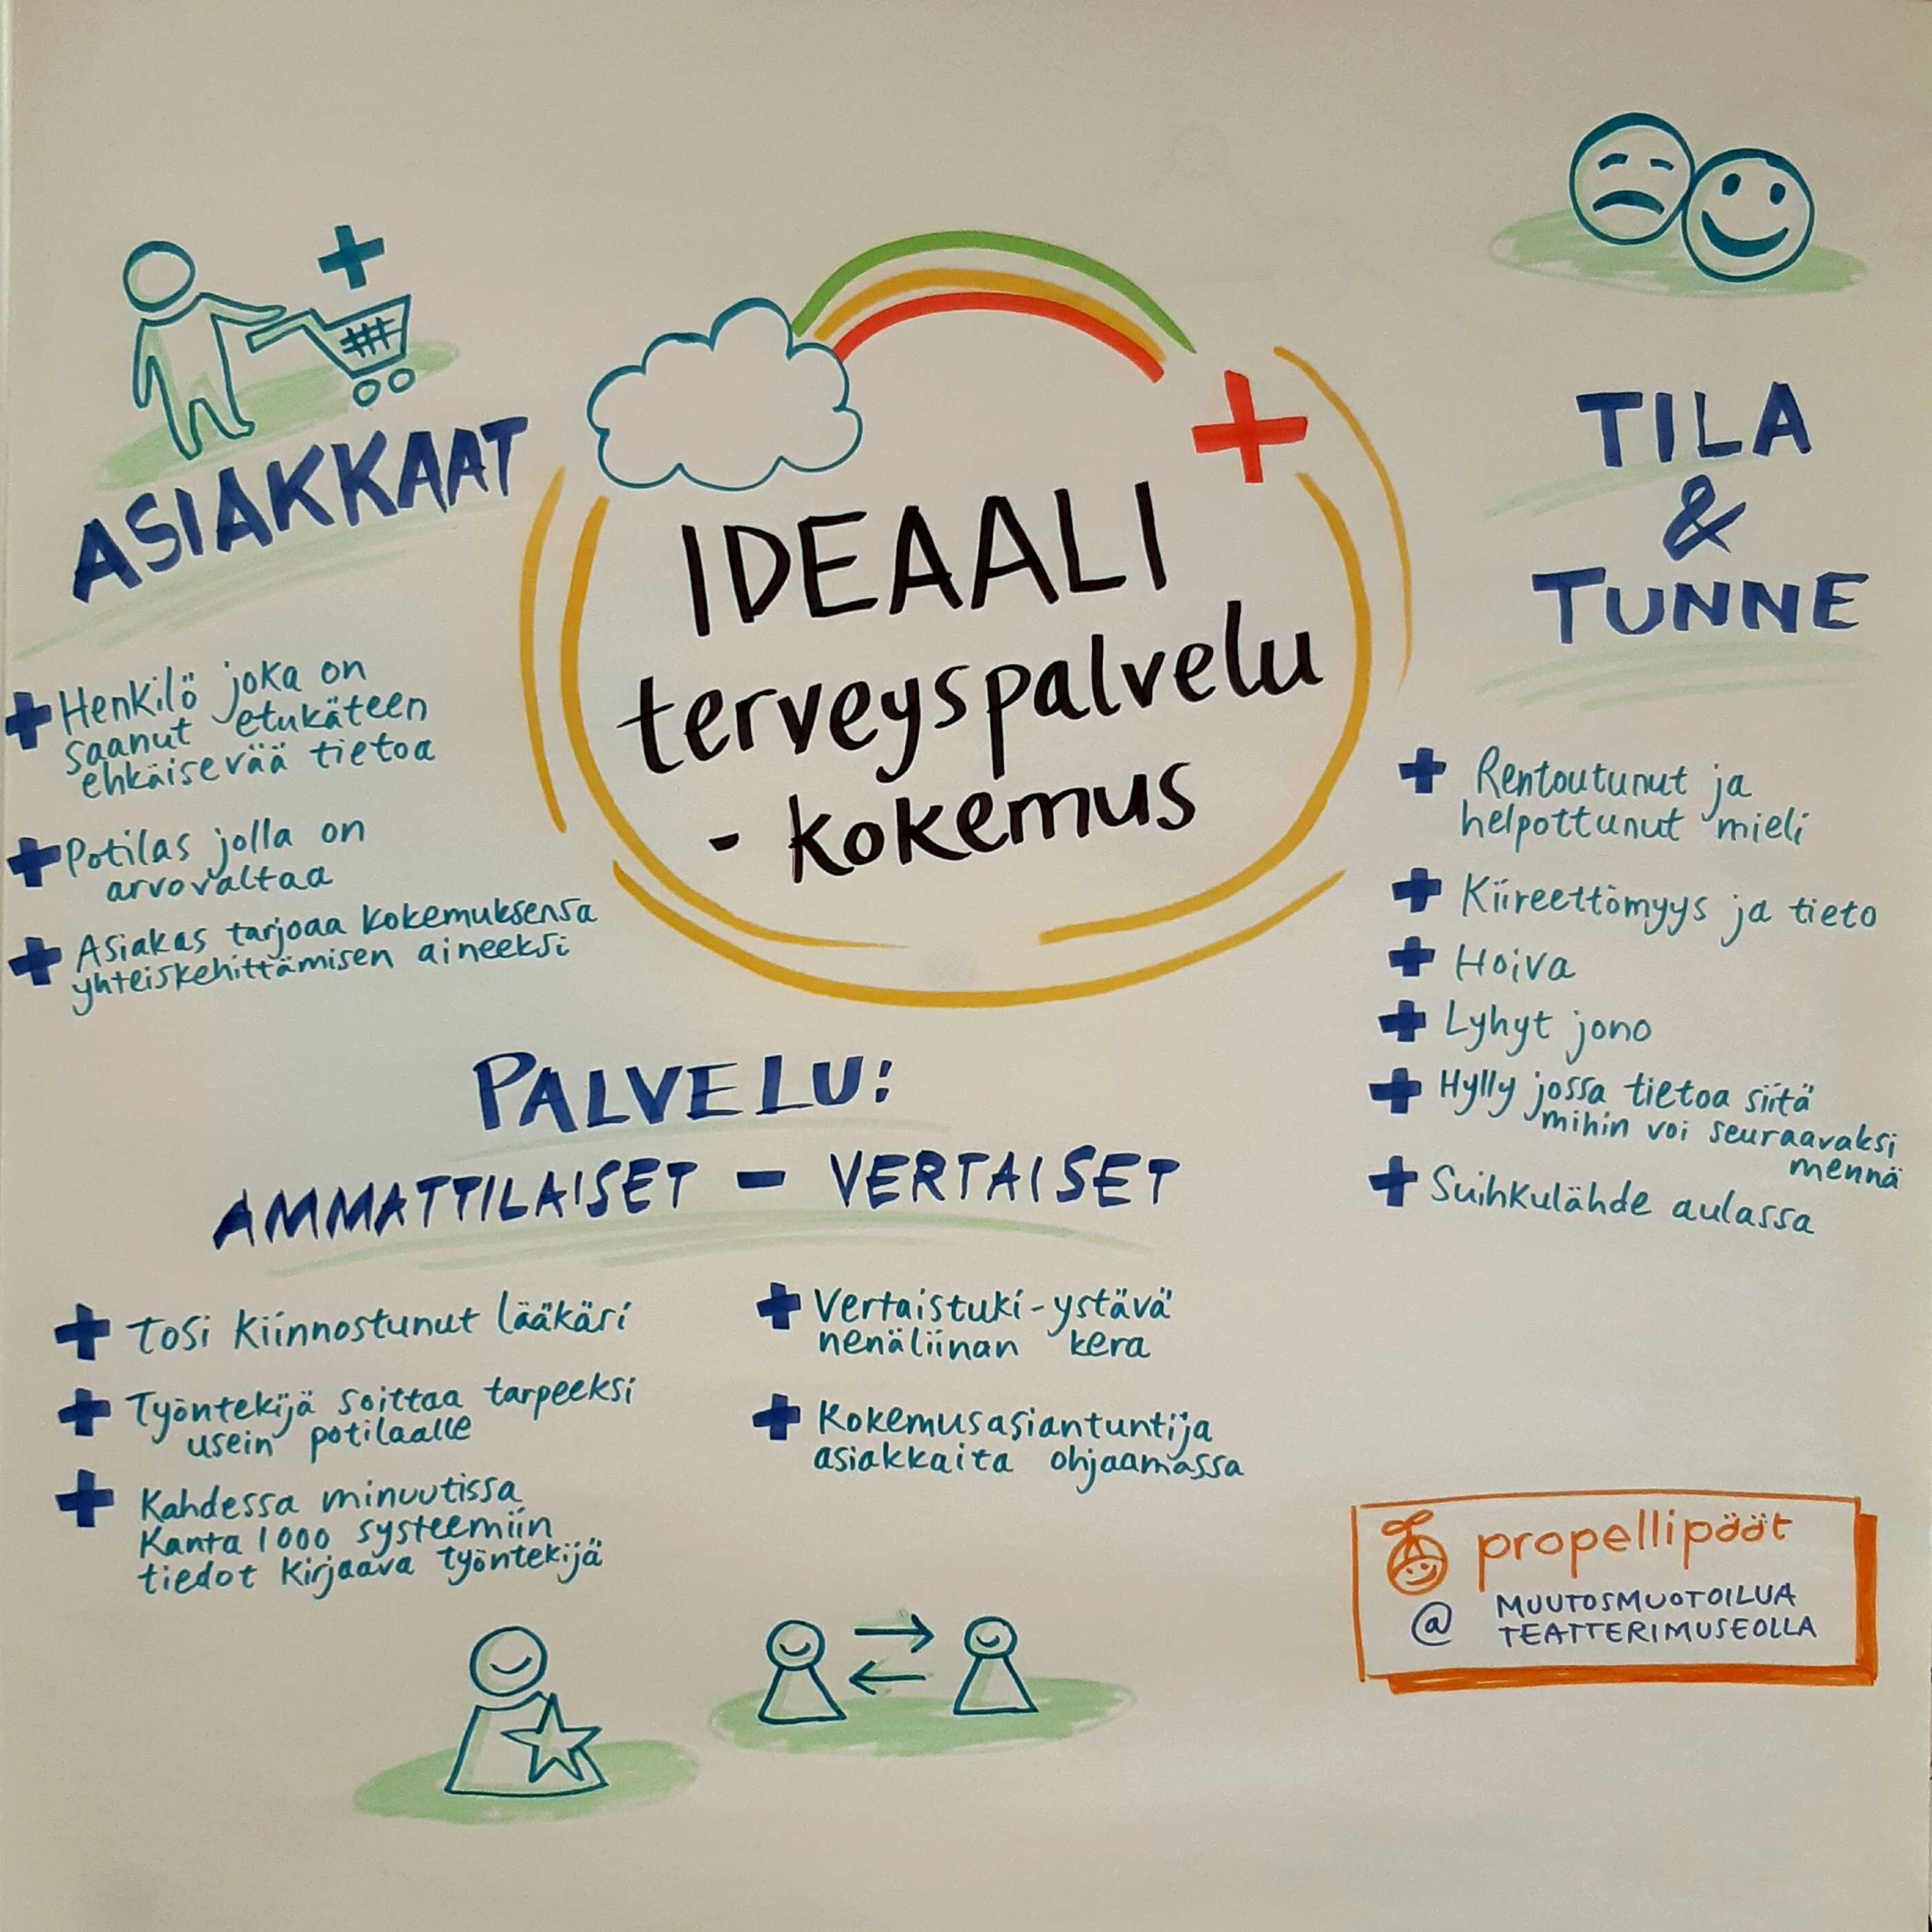 IDEAALI
terveyspalvelu
- kokemus
ASIAKKAAT
+ Henkilö joka on
saanut etukäteen
ehkäisevää tietoa
+ Potilas jolla on
arvovaltaa
+ Asiakas tarjoaa kokemuksensa
yhteiskehittämisen aineeksi
TILA
&
TUNNE
+ Rentoutunut ja
helpottunut mieli
+ Kiireettömyys ja tieto
+ Hoiva
+ Lyhyt jono
+ Hylly jossa tietoa siitä
mihin voi seuraavaksi
mennä
+ Suihkulähde aulassa
PALVELU:
AMMATTILAISET - VERTAISET
+ Tosi kiinnostunut lääkäri
+ Työntekijä soittaa tarpeeksi
usein potilaalle
+ Kahdessa minuutissa
Kanta 1000 systeemiin
tiedot kirjaava työntekijä
+ Vertaistuki-ystävä
nenäliinan kera
+ Kokemusasiantuntija
asiakkaita ohjaamassa
propellipäät
@ MUUTOSMUOTOILUA
TEATTERIMUSEOLLA